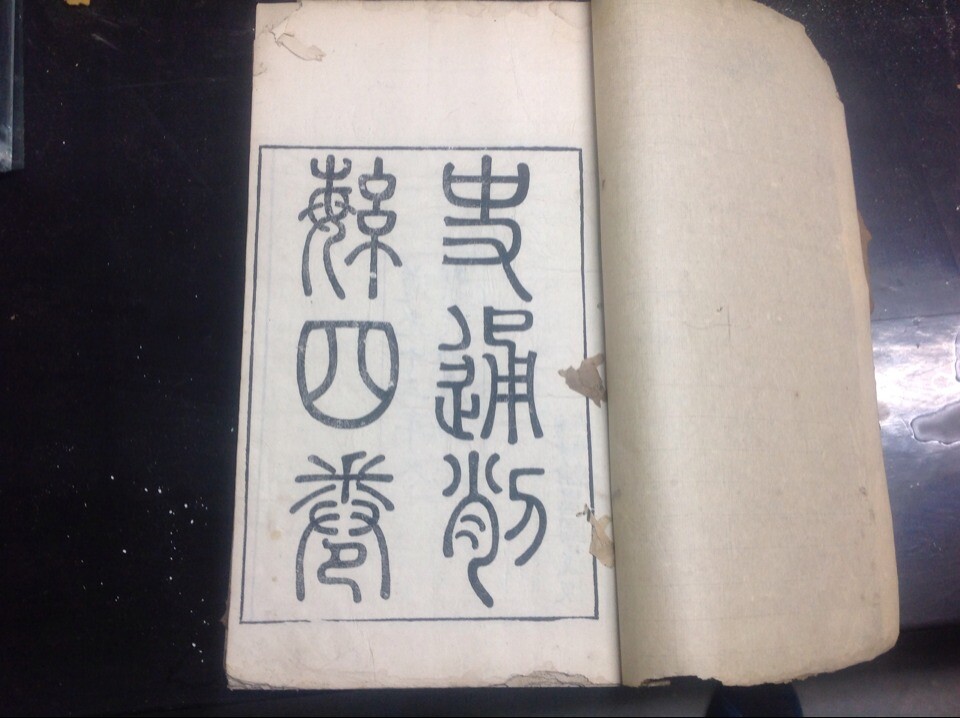 史通削
緐四卷